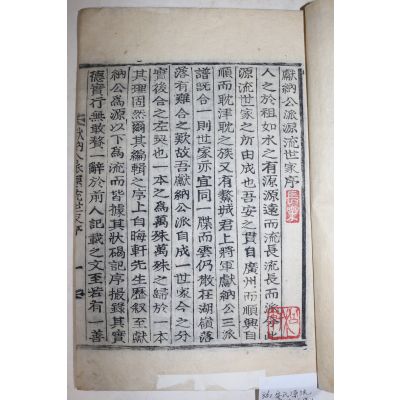 獻納公派源流世家序
人之於祖如水之有源源遠而流長流長而派分此
源流世家之所由成也吾安之貫自廣州而順興自
順而耽津耽之族又有鰲城君上將軍獻納公三派
譜旣合一則世家亦宜同一牒而雲仍散在湖嶺落
落有難合之歎故吾獻納公派自成一世家今之分
實後合之左契也一本之爲萬殊萬殊之歸於一本
其理固然爾其編輯之序上自晦軒先生歷叙至獻
納公爲源以下爲流而皆據其狀碣記序撮錄其實
德實行無敢贅一辭於前人記載之文至若有一善
獻納公派源流世家序 一